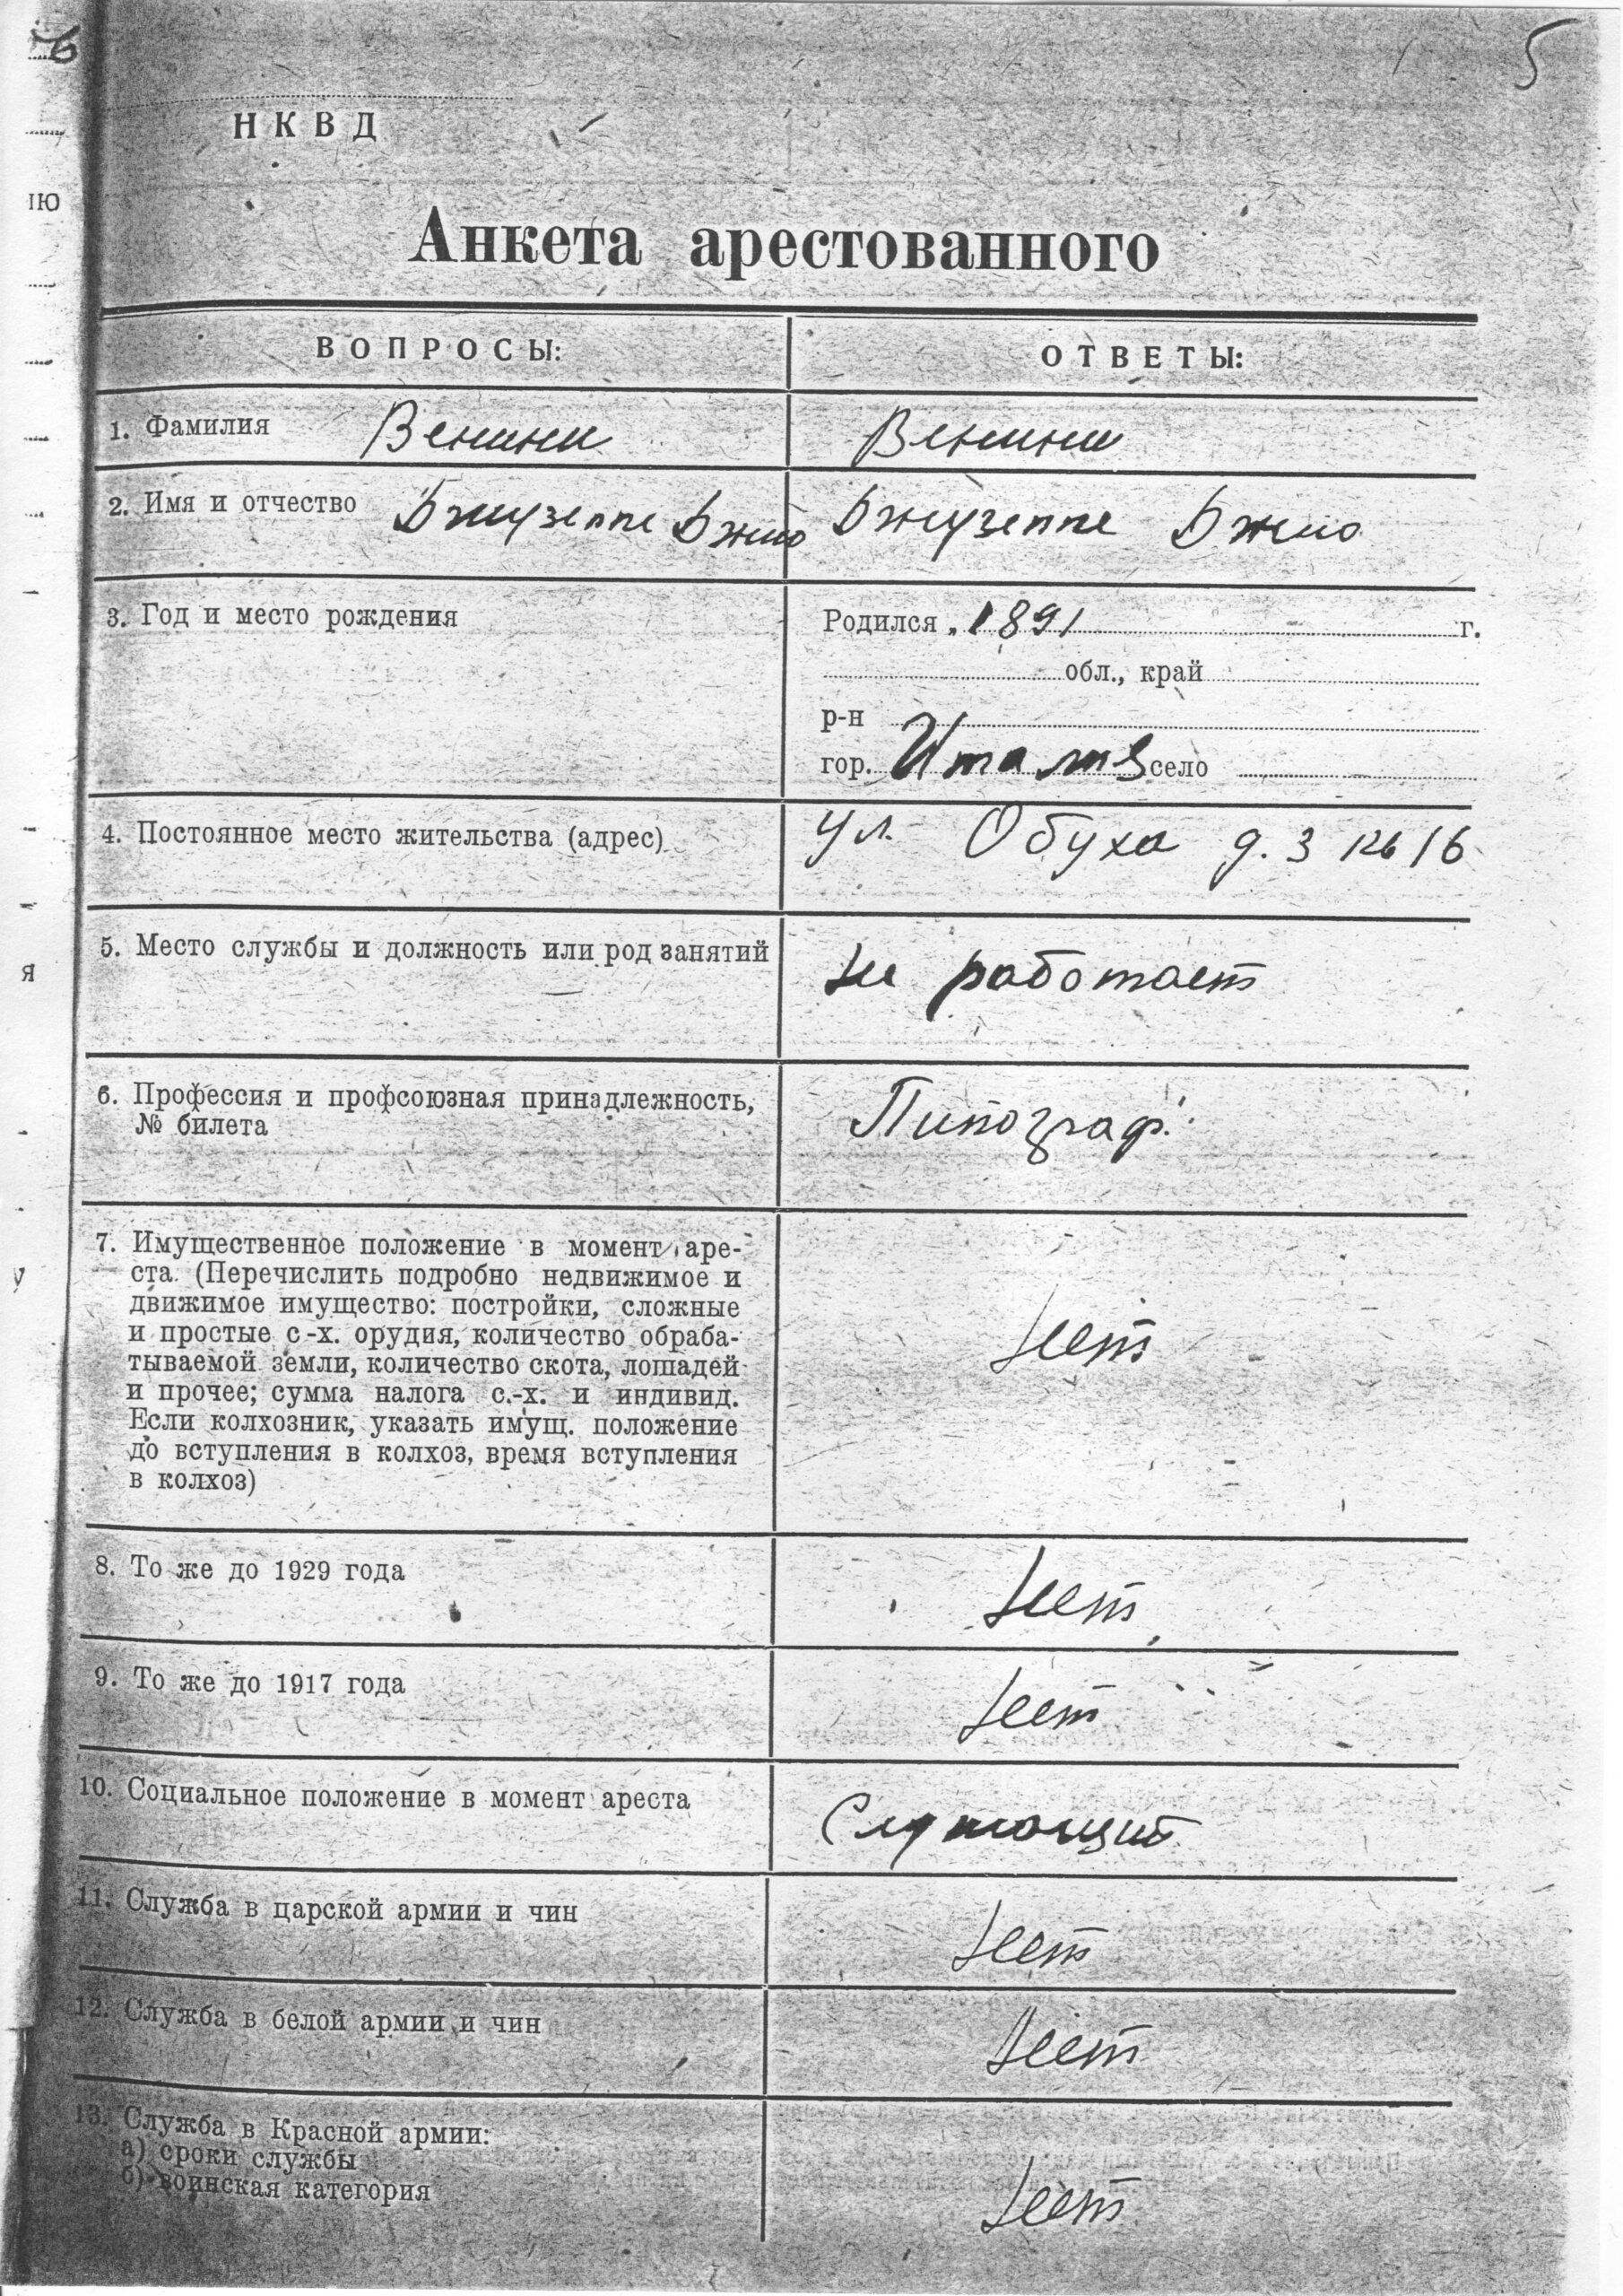 5
НКВД
ію
Анкета арестованного
ВОПРОСЫ:
ОТВЕТЫ:
1. Фамилия Венини
Венини
2. Имя и отчество Джузеппе Джио
Джузеппе Джио
3. Год и место рождения
Родился 1891 г.
обл., край
р-н
гор. Италия село
4. Постоянное место жительства (адрес)
ул. Обуха д. 3 кв 16
5. Место службы и должность или род занятий
не работает
6. Профессия и профсоюзная принадлежность,
№ билета
Типограф.
7. Имущественное положение в момент аре-
ста. (Перечислить подробно недвижимое и
движимое имущество: постройки, сложные
и простые с-х. орудия, количество обраба-
тываемой земли, количество скота, лошадей
и прочее; сумма налога с.-х. и индивид.
Если колхозник, указать имущ. положение
до вступления в колхоз, время вступления
в колхоз)
нет
8. То же до 1929 года
нет
9. То же до 1917 года
нет
10. Социальное положение в момент ареста
Служащий
11. Служба в царской армии и чин
нет
12. Служба в белой армии и чин
нет
13. Служба в Красной армии:
а) сроки службы
б) воинская категория
нет